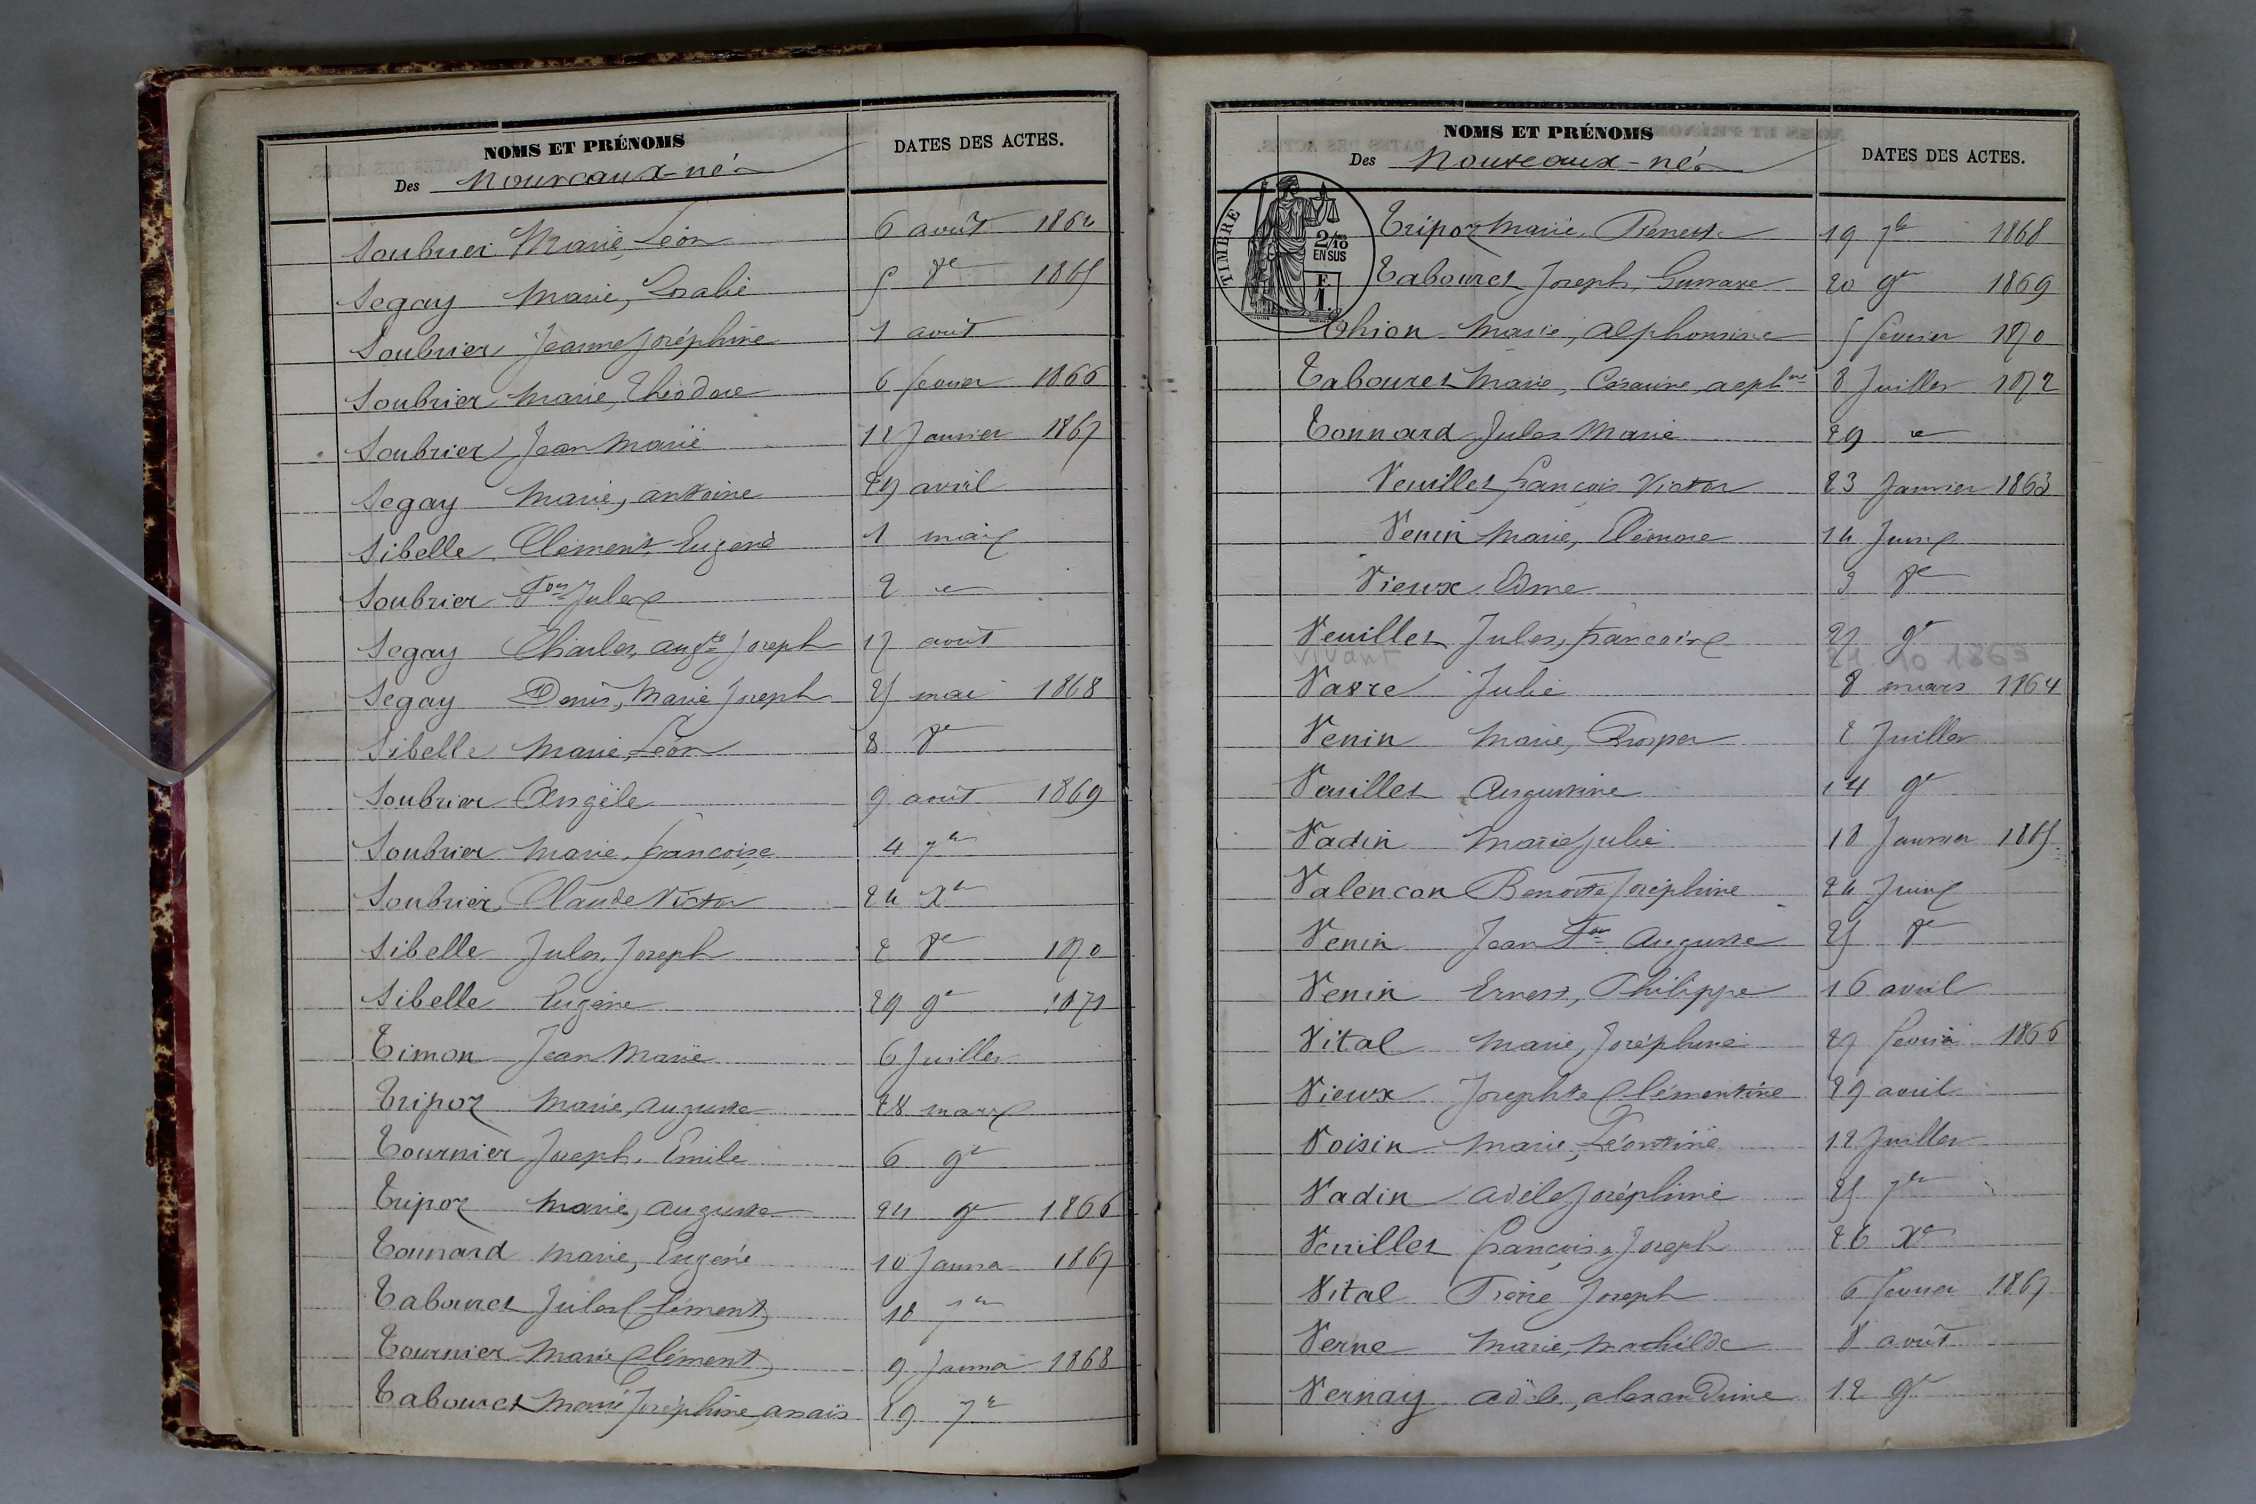 NOMS ET PRÉNOMS
DATES DES ACTES.
Des Nouveaux-nés
Soubrier Marie, Léon 6 août 1864
Segay Marie, Rosalie 5 8e 1865
Soubrier Jeanne Joséphine 1 août
Soubrier Marie, Théodore 6 février 1866
Soubrier Jean Marie 12 Janvier 1867
Segay Marie, antoine 29 avril
Sibelle Clément Eugène 1 mai
Soubrier Fois Jules 2 "
Segay Charles, augte Joseph 17 août
Segay Denis, Marie Joseph 25 mai 1868
Sibelle Marie, Léon 8 8e
Soubrier Angèle 9 août 1869
Soubrier Marie, françoise 4 7e
Soubrier Claude Victor 24 Xe
Sibelle Jules, Joseph 2 8e 1870
Sibelle Eugène 29 9e 1871
Timon Jean Marie 6 Juillet
Tripoz Marie, auguste 28 mars
Tournier Joseph, Emile 6 9e
Tripoz Marie, auguste 24 9e 1866
Tonnard Marie, Eugénie 10 Janvier 1867
Tabouret Jules Clément 18 7e
Tournier Marie Clément 9 Janvier 1868
Tabouret Marie Joséphine, anaïs 29 7e
NOMS ET PRÉNOMS
DATES DES ACTES.
Des Nouveaux-nés
TIMBRE
2/10
EN SUS
F
1
Tripoz Marie, Ernest 19 7e 1868
Tabouret Joseph, Gustave 20 9e 1869
Thion Marie, alphonsine 5 février 1870
Tabouret Marie, Césarine, 8 Juillet 1872
Tonnard Jules Marie 29 "
Veuillet françois Victor 23 Janvier 1863
Venin Marie, Eléonore 14 Juin
Vieux Edme 3 8e
Veuillet Jules, françoise 27 9e
vivant 27 10 1863
Vavre Julie 8 mars 1864
Venin Marie, Prosper 2 Juillet
Veuillet Augustine 14 9e
Vadin Marie Julie 18 Janvier 1865
Valencon Benoite Joséphine 24 Juin
Venin Jean Fois Auguste 25 8e
Venin Ernest, Philippe 16 avril
Vital Marie, Joséphine 27 février 1866
Vieux Josephte Clémentine 29 avril
Voisin Marie, Léontine 12 Juillet
Vadin adèle Joséphine 25 7e
Veuillet françois Joseph 26 Xe
Vital Pierre Joseph 6 février 1867
Verne Marie, Mathilde 8 août
Vernay adèle, alexandrine 12 9e